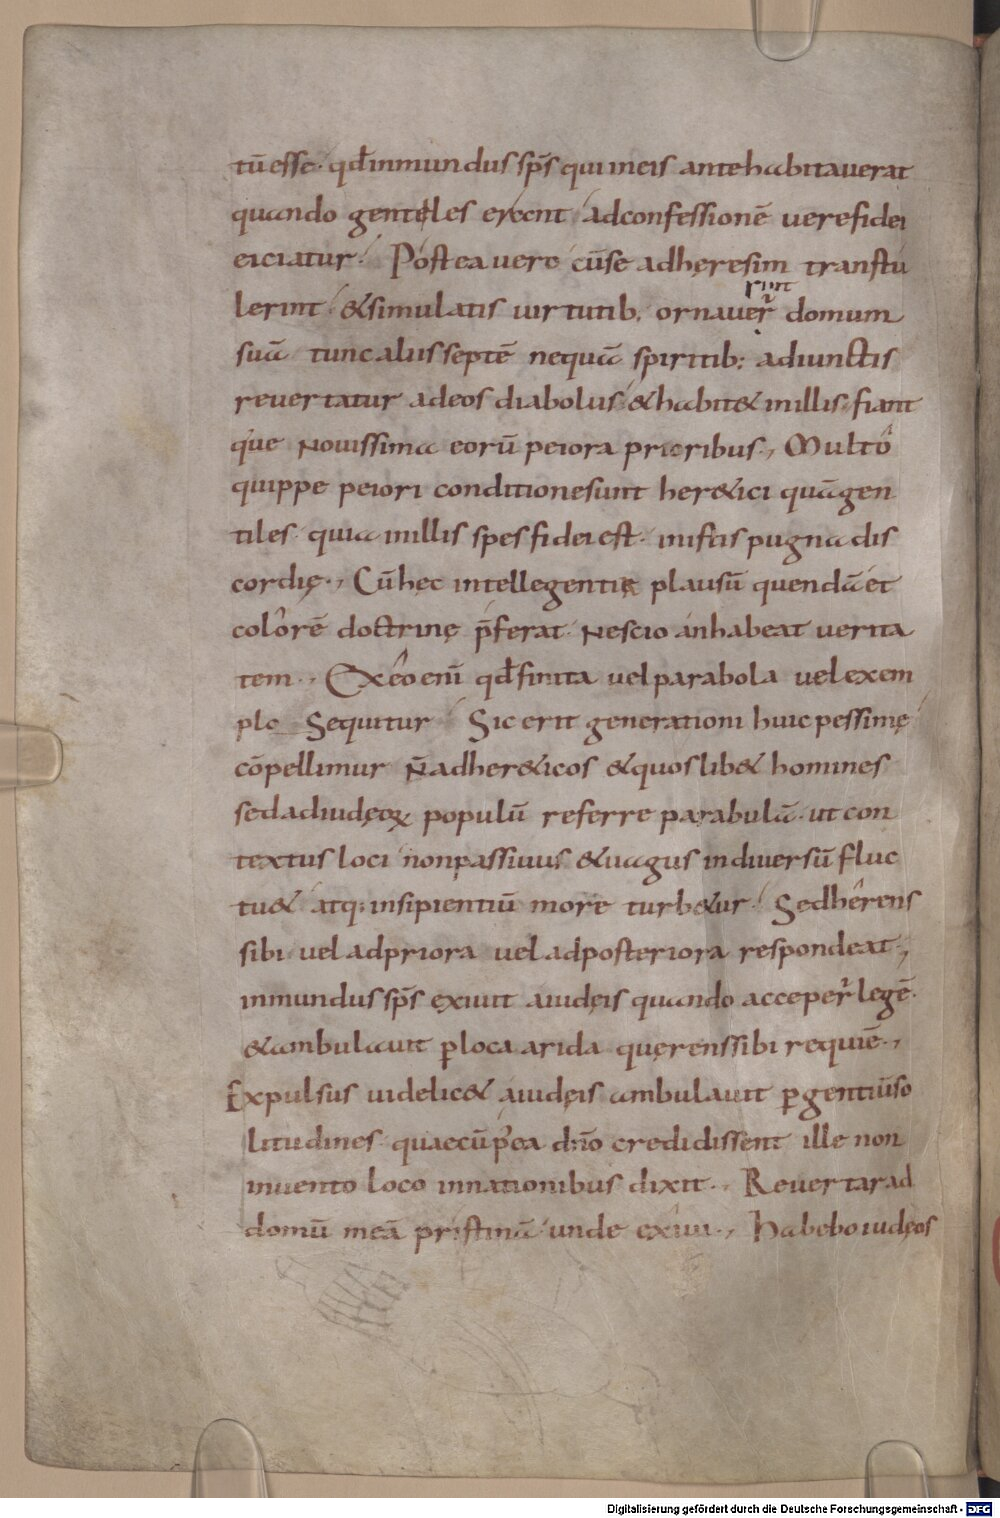 tū esse· qđ inmundus sps̄ qui in eis ante habitauerat
quando gentiles erant ad confessionē uere fidei
eiciatur· Postea uero cū se ad hęresim transtu
lerint & simulatis uirtutib; ornauer̄ domum
runt
suā tunc alus septē nequā spiritib; adiunctis
reuertatur ad eos diabolus & habit& in illis· fiant
q·ue nouissima eorū peiora prioribus·, Multo
quippe peiori conditione sunt her&ici quā gen
tiles· quia in illis spes fidei est· in istis pugna dis
cordię·, Cū hęc intellegentię plausū quendā et
colorē doctrinę p̄ferat· Nescio an habeat uerita
tem·, Ex eo enī qđ finita uel parabola uel exem
plo Sequitur Sic erit generationi huic pessimę
cō pellimur N̄ ad her&icos & quoslib& homines
sed ad iudęoꝝ populū referre parabulā· ut con
textus loci non passiuus & uagus in diuersū fluc
tu& atq; insipientiū more turb&ur· Sed hęrens
sibi uel ad priora uel ad posteriora respondeat·,
inmundus sps̄ exiuit a iudęis quando acceper̄ legē·
& ambulauit ꝑ loca arida quęrens sibi requiē·,
Expulsus uidelic& a iudęis ambulauit ꝑ gentiū so
litudines· quae cū p̾ea dn̄o credidissent ille non
inuento loco in nationibus dixit·, Reuertar ad
domū meā pristinā· unde exiui·, Habebo iudęos
Digitalisierung gefördert durch die Deutsche Forschungsgemeinschaft - DFG